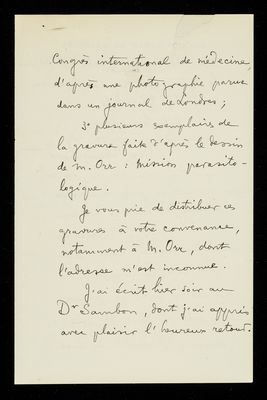 Congrès international de médecine,
d'après une photographie parue
dans un journal de Londres ;
3° plusieurs exemplaires de
la gravure faite d'après le dessin
de M. Orr : Mission parasito-
logique.
Je vous prie de distribuer ces
gravures à votre convenance,
notamment à M. Orr, dont
l'adresse m'est inconnue.
J'ai écrit hier soir au
Dr Sambon, dont j'ai appris
avec plaisir l'heureux retour.